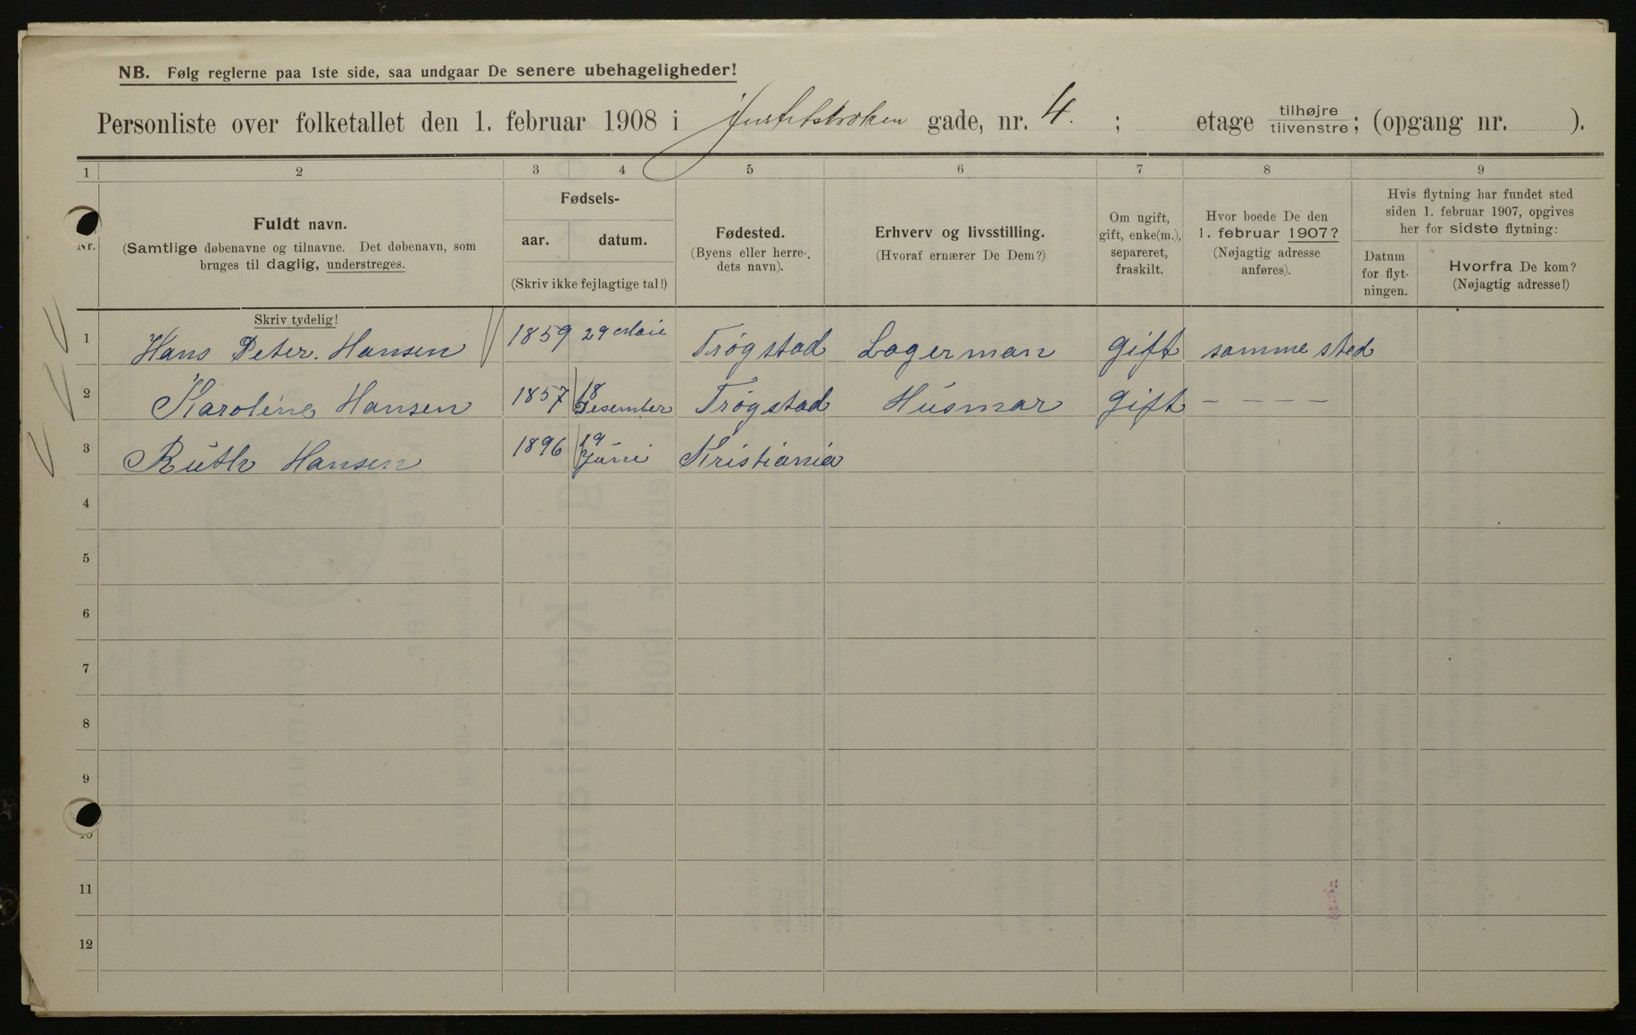 NB. Følg reglerne paa 1ste side, saa undgaar De senere ubehageligheder!
Personliste over folketallet den 1. februar 1908 i Justitsbroken gade, nr. 4. ; etage tilhøjre tilvenstre ; (opgang nr. ).
1 2 3 4 5 6 7 8 9
Nr.
Fuldt navn.
(Samtlige døbenavne og tilnavne. Det døbenavn, som
bruges til daglig, understreges.
Skriv tydelig!
Fødsels-
aar. datum.
(Skriv ikke fejlagtige tal!)
Fødested.
(Byens eller herre-
dets navn).
Erhverv og livsstilling.
(Hvoraf ernærer De Dem?)
Om ugift,
gift, enke(m.),
separeret,
fraskilt.
Hvor boede De den
1. februar 1907?
(Nøjagtig adresse
anføres).
Hvis flytning har fundet sted
siden 1. februar 1907, opgives
her for sidste flytning:
Datum
for flyt-
ningen.
Hvorfra De kom?
(Nøjagtig adresse!)
1 Hans Peter. Hansen 1859 29 Maie Trøgstad Lagerman gift samme sted
2 Karoline Hansen 1857 18 Desember Trøgstad Husmor gift - - - -
3 Ruth Hansen 1896 19 Juni Kristiania
4
5
6
7
8
9
10
11
12